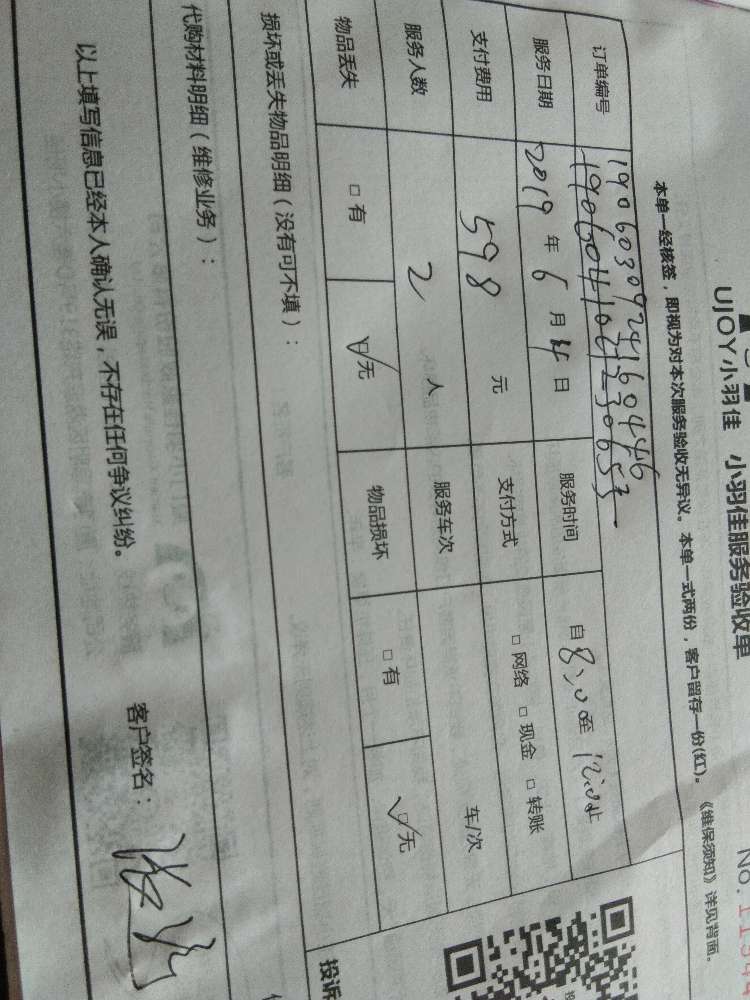 UJOY小羽佳 小羽佳服务验收单
No.1154
本单一经核签，即视为对本次服务验收无异议。本单一式两份，客户留存一份(红)。《维保须知》详见背面。
订单编号 19060309241604446
服务日期 2019 年 6 月 4 日 服务时间 自 8:00 至 12:00 止
支付费用 598 元 支付方式 □ 网络 □ 现金 □ 转账
服务人数 2 人 服务车次 车/次
物品丢失 □ 有 ☑ 无 物品损坏 □ 有 ☑ 无
损坏或丢失物品明细（没有可不填）：
代购材料明细（维修业务）：
以上填写信息已经本人确认无误，不存在任何争议纠纷。 客户签名：
投诉